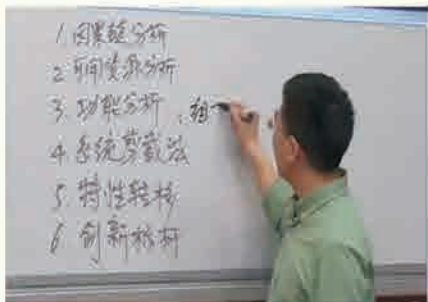 1. 因果链分析
2. 可用资源分析
3. 功能分析、组
4. 系统剪裁法
5. 特性转移
6. 创新标杆